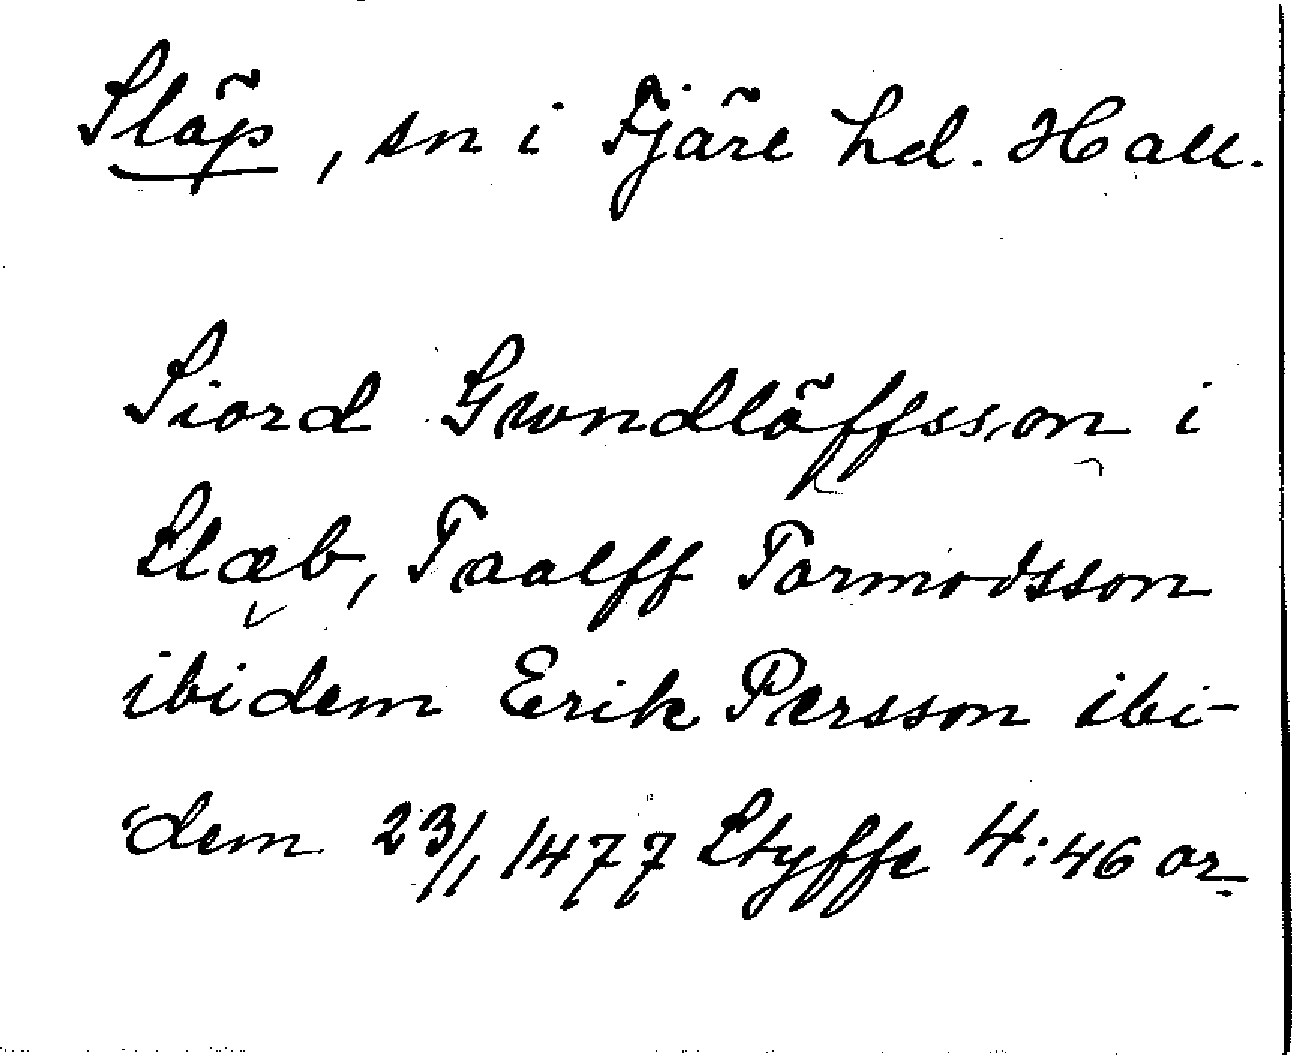 Släp, sn i Fjäre hd. Hall.
Siord Gwndlöffsson i
Slæb, Taalff Tormodsson
ibidem Erik Persson ibi-
dem 23/1 1477 Styffe 4:46 or